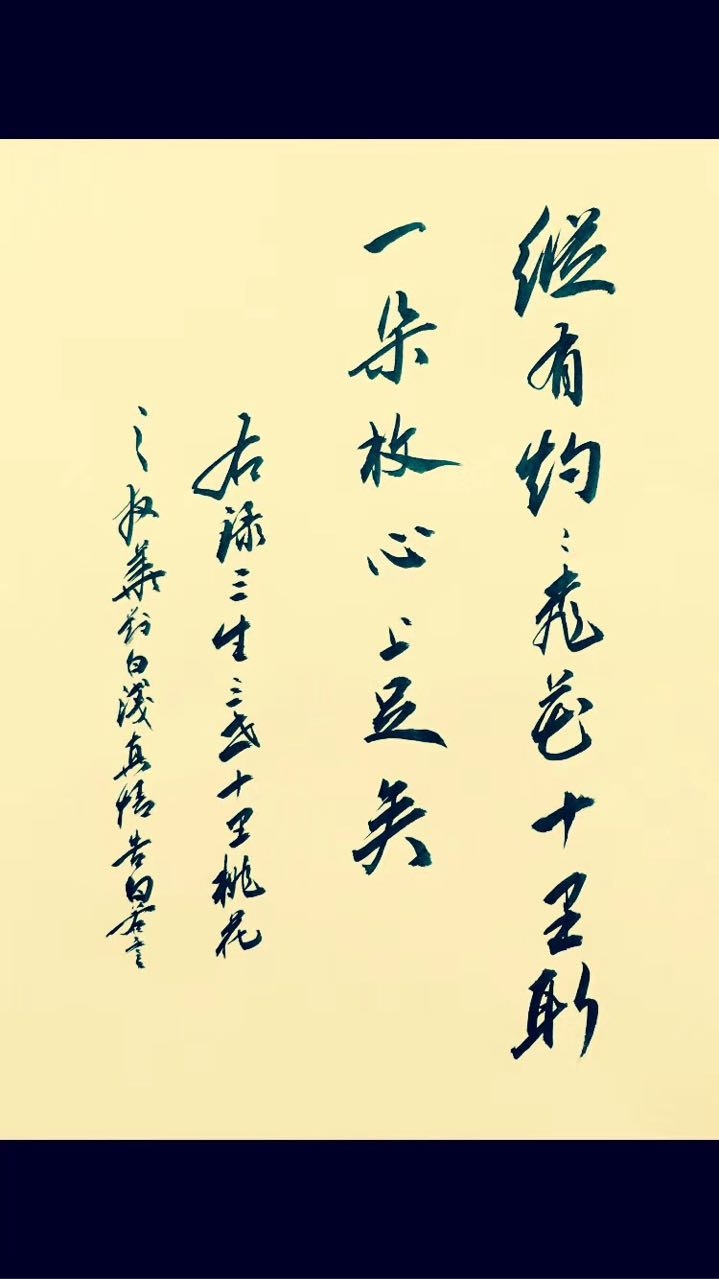 縱有灼〻桃花十里取
一朵放心上足矣
右録三生三世十里桃花
之夜華對白淺真情告白名言